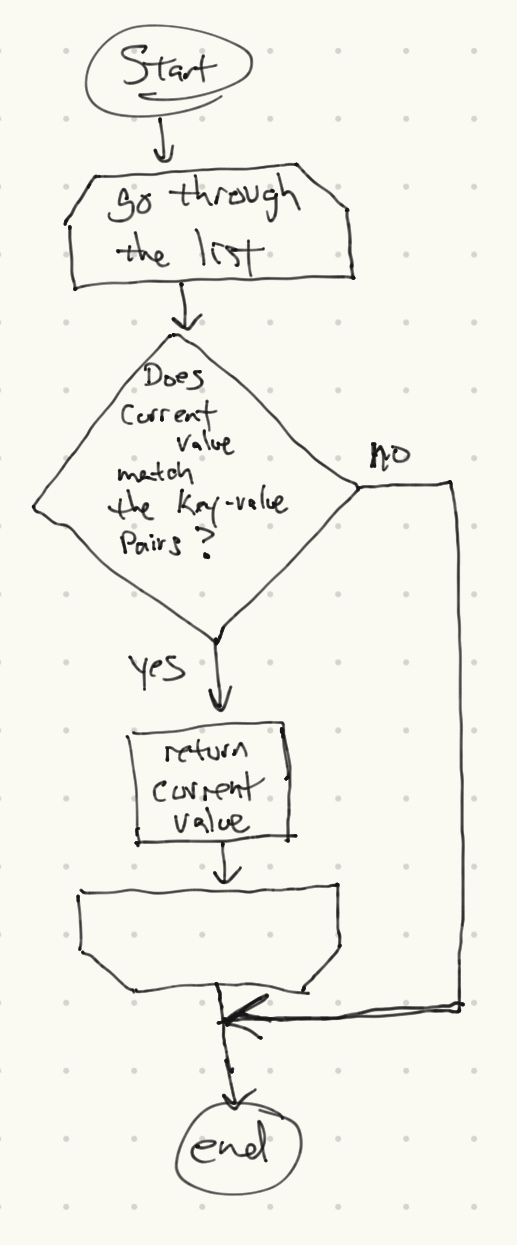 Start
go through
the list
Does
Current
value
match
the Key-value
Pairs?
no
yes
return
current
value
end